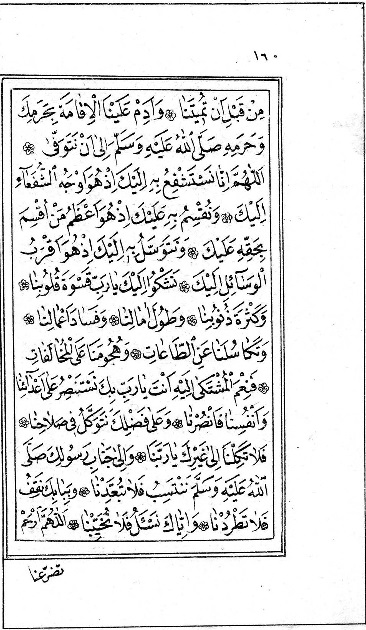 ١٦٠
مِنْ قَبْلِ اَنْ تُمِيتَنَا ۞ وَاَدِمْ عَلَيْنَا الْاِقَامَةَ بِحَرَمِكَ
وَحَرَمِهِ صَلَّى اللّٰهُ عَلَيْهِ وَسَلَّمَ اِلٰى اَنْ نَتَوَفّٰى ۞
اَللّٰهُمَّ اِنَّا نَسْتَشْفِعُ بِهِ اِلَيْكَ اِذْ هُوَ اَوْجَهُ الشُّفَعَاءِ
اِلَيْكَ ۞ وَنُقْسِمُ بِهِ عَلَيْكَ اِذْ هُوَ اَعْظَمُ مَنْ اُقْسِمَ
بِحَقِّهِ عَلَيْكَ ۞ وَنَتَوَسَّلُ بِهِ اِلَيْكَ اِذْ هُوَ اَقْرَبُ
الْوَسَائِلِ اِلَيْكَ ۞ نَشْكُوا اِلَيْكَ يَارَبِّ قَسْوَةَ قُلُوبِنَا ۞
وَكَثْرَةَ ذُنُوبِنَا ۞ وَطُولَ اٰمَالِنَا ۞ وَفَسَادَ اَعْمَالِنَا ۞
وَتَكَاسُلَنَا عَنِ الطَّاعَاتِ ۞ وَهُجُومَنَا عَلَى الْمُخَالَفَاتِ
۞ فَنِعْمَ الْمُشْتَكٰى اِلَيْهِ اَنْتَ يَارَبِّ بِكَ نَسْتَنْصِرُ عَلٰى اَعْدَائِنَا
وَاَنْفُسِنَا فَانْصُرْنَا ۞ وَعَلٰى فَضْلِكَ نَتَوَكَّلُ فِى صَلَاحِنَا ۞
فَلَا تَكِلْنَا اِلٰى غَيْرِكَ يَارَبَّنَا ۞ وَاِلٰى جَنَابِ رَسُولِكَ صَلَّى
اللّٰهُ عَلَيْهِ وَسَلَّمَ نَنْتَسِبُ فَلَا تُبْعِدْنَا ۞ وَبِبَابِكَ نَقِفُ
فَلَا تَطْرُدْنَا ۞ وَاِيَّاكَ نَسْئَلُ فَلَا تُخَيِّبْنَا ۞ اَللّٰهُمَّ ارْحَمْ
تضرعنا